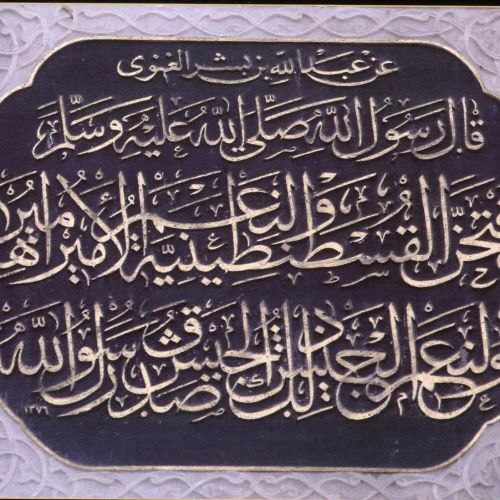 عن عبد الله بن بشر الغنوى
قال رسول الله صلى الله عليه وسلم
القسطنطينية ولنعم الأمير اميرها
ولنعم الجيش ذلك الجيش صدق رسول الله
١٣٧٦